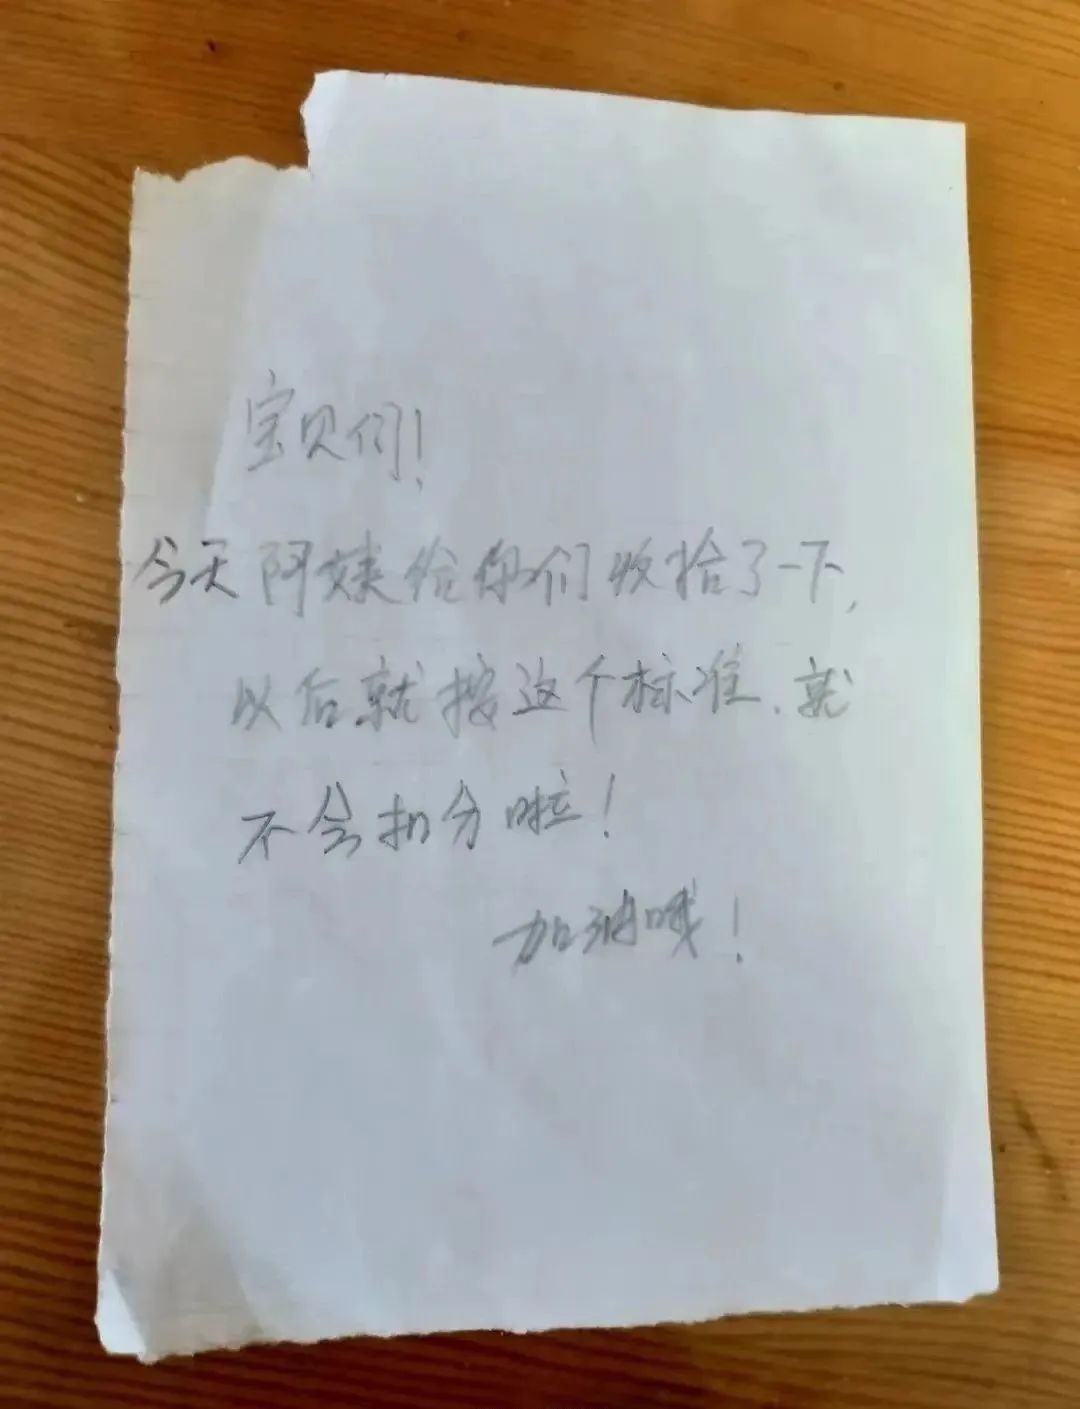 宝贝们!
今天阿姨给你们收拾了一下,
以后就按这个标准.就
不会扣分啦!
加油哦!